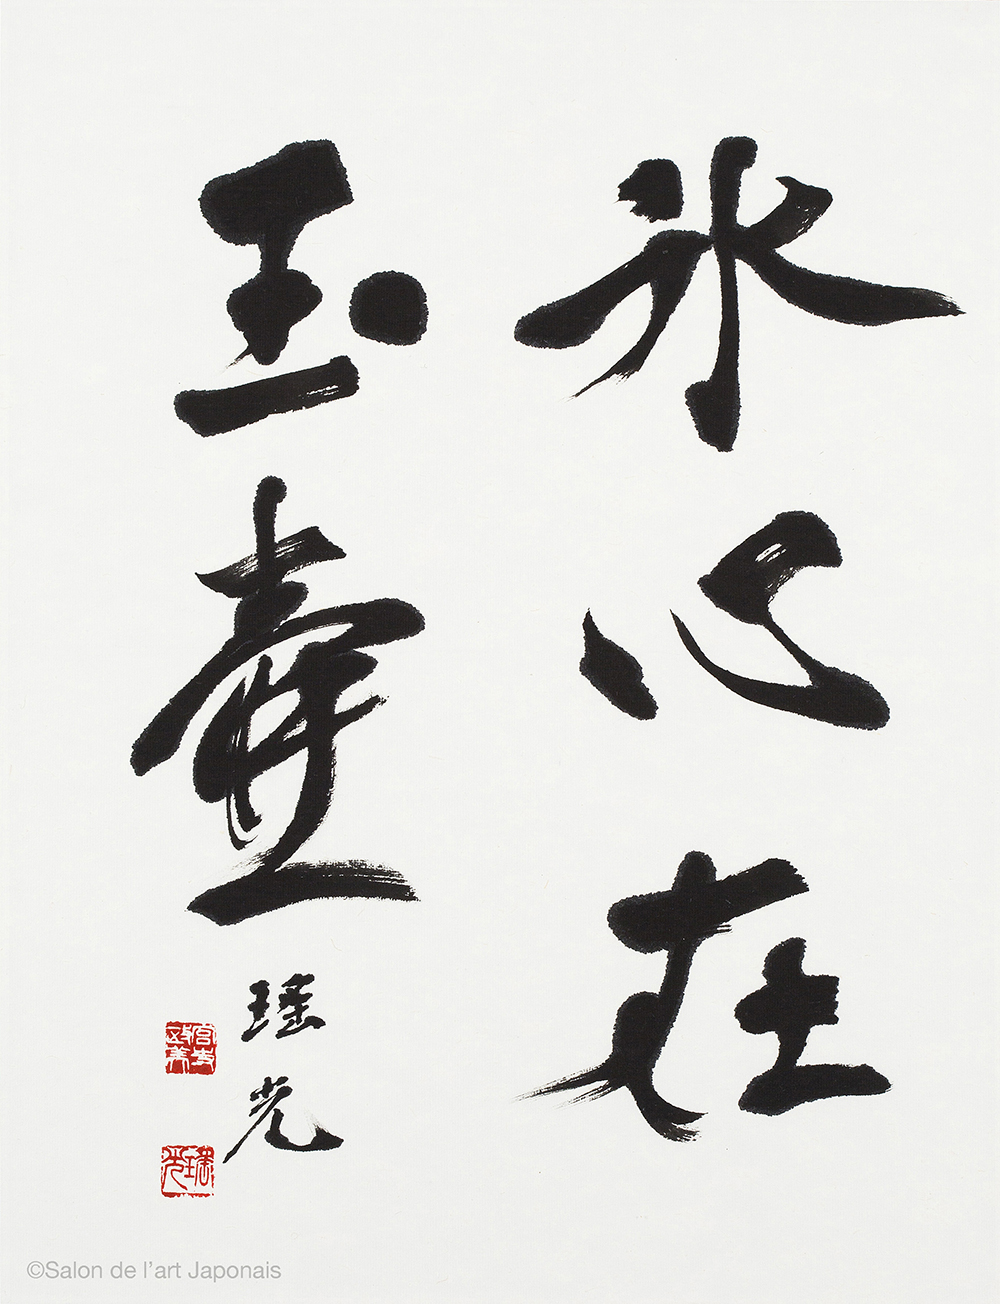 氷心在
玉壷
瑶光
瑶光
©Salon de l'art Japonais